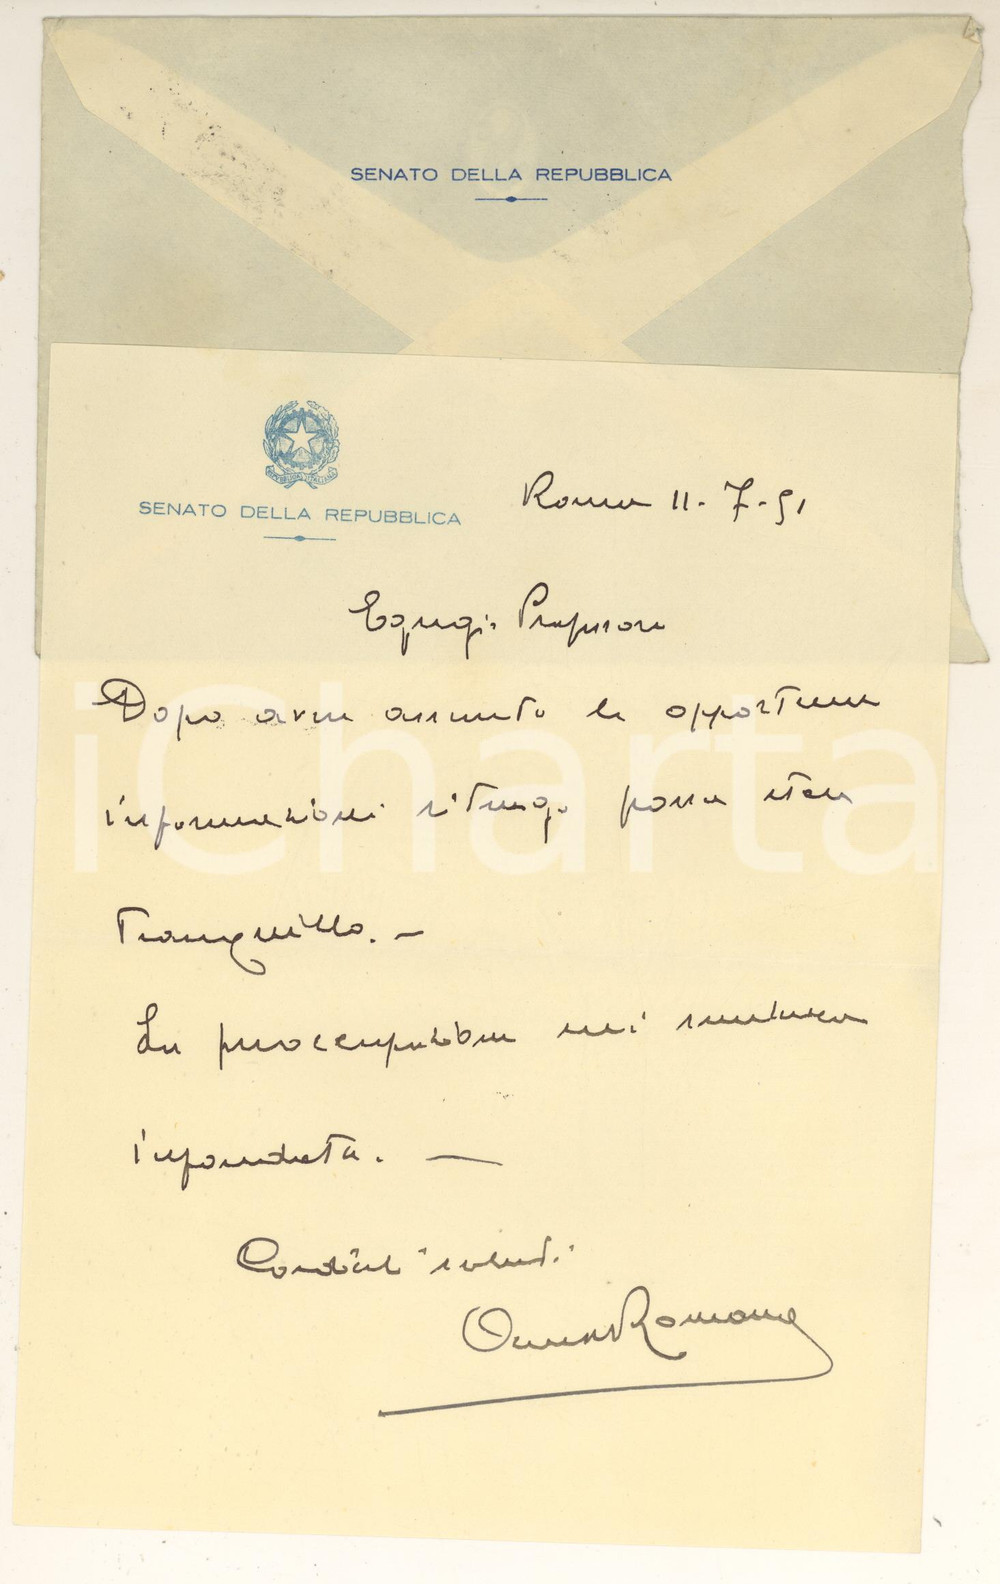 SENATO DELLA REPUBBLICA
REPVBBLICA ITALIANA
SENATO DELLA REPUBBLICA
Roma 11-7-51
Egregio Professore
Dopo aver assunto le opportune
informazioni ritengo possa stare
tranquillo. —
La preoccupazione mi sembrava
infondata. —
Cordiali saluti
Romano
iCharta